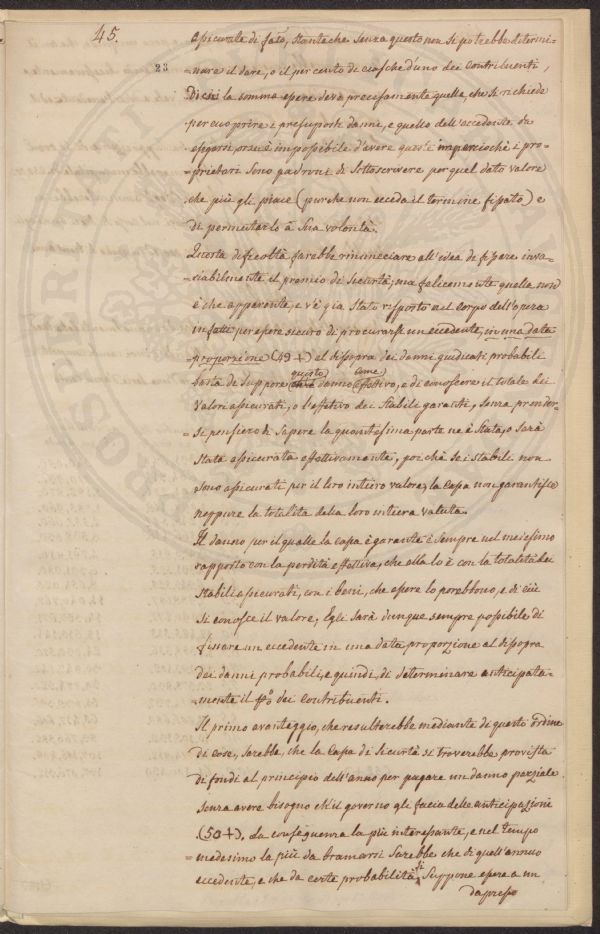 45.
assicurale di fatò, stanteche senza questo non si potrebbe determi-
23
-nare il dare, o il per cento di ciascheduno dei contribuenti,
Di cui la somma essere deve precisamente quella, che si richiede
per cuoprire i presuposti danni, e quello dell'eccedente da
esigersi, pur è impossibile d'avere imperciochè i pro-
-prietari sono padroni di sottoscrivere per quel dato valore
che più gli piace (purche non ecceda il termine fissato) e
di permutarlo à sua volontà.
Questa dificoltà farebbe rinunciare all'idea di fissare inva-
-riabilmente il premio di sicurtà; ma felicemente quella non
è che apparente, e v'è gia stato risposto nel corpo dell'opera
infatti per essere sicuro di procurarsi un eccedente, in una data
proporzione (49 +) al dissopra dei danni giudicati probabili
basta di suppore questo danno come effettivo, e di conoscere il totale dei
valori assicurati, o l'effettivo dei stabili garanti, senza prender-
-si pensiero di sapere la quantesima parte ne è stata, o sarà
stata assicurata effettivamente, poi chè se i stabili non
sono assicurati per il loro intiero valore, la Cassa non garantisce
neppure la totalita della loro intiera valuta.
Il danno per il qualle la cassa è garante è sempre nel medesimo
rapporto con la perdità effettiva, che alla lo è con la totalità dei
stabili assicurati, con i beni, che essere lo potrebbono, e di cui
si conosce il valore; Egli sarà dunque sempre possibile di
fissare un eccedente in una data proporzione al dissopra
dei danni probabili, e quindi, di determinare anticipata-
-mente il p% dei contribuenti.
Il primo avantaggio, che resulterebbe mediante di questo ordine
di cose, sarebbe, che la Cassa di sicurtà si troverebbe provista
di fondi al principio dell'anno per pagare un danno parziale
senza avere bisogno ch'il governo gli facia delle anticipazioni
(50+). La conseguenza la più interessante, e nel tempo
medesimo la più da bramarsi sarebbe che di quell'annuo
eccedente, e che da certe probabilità si suppone essere a un
dapresso